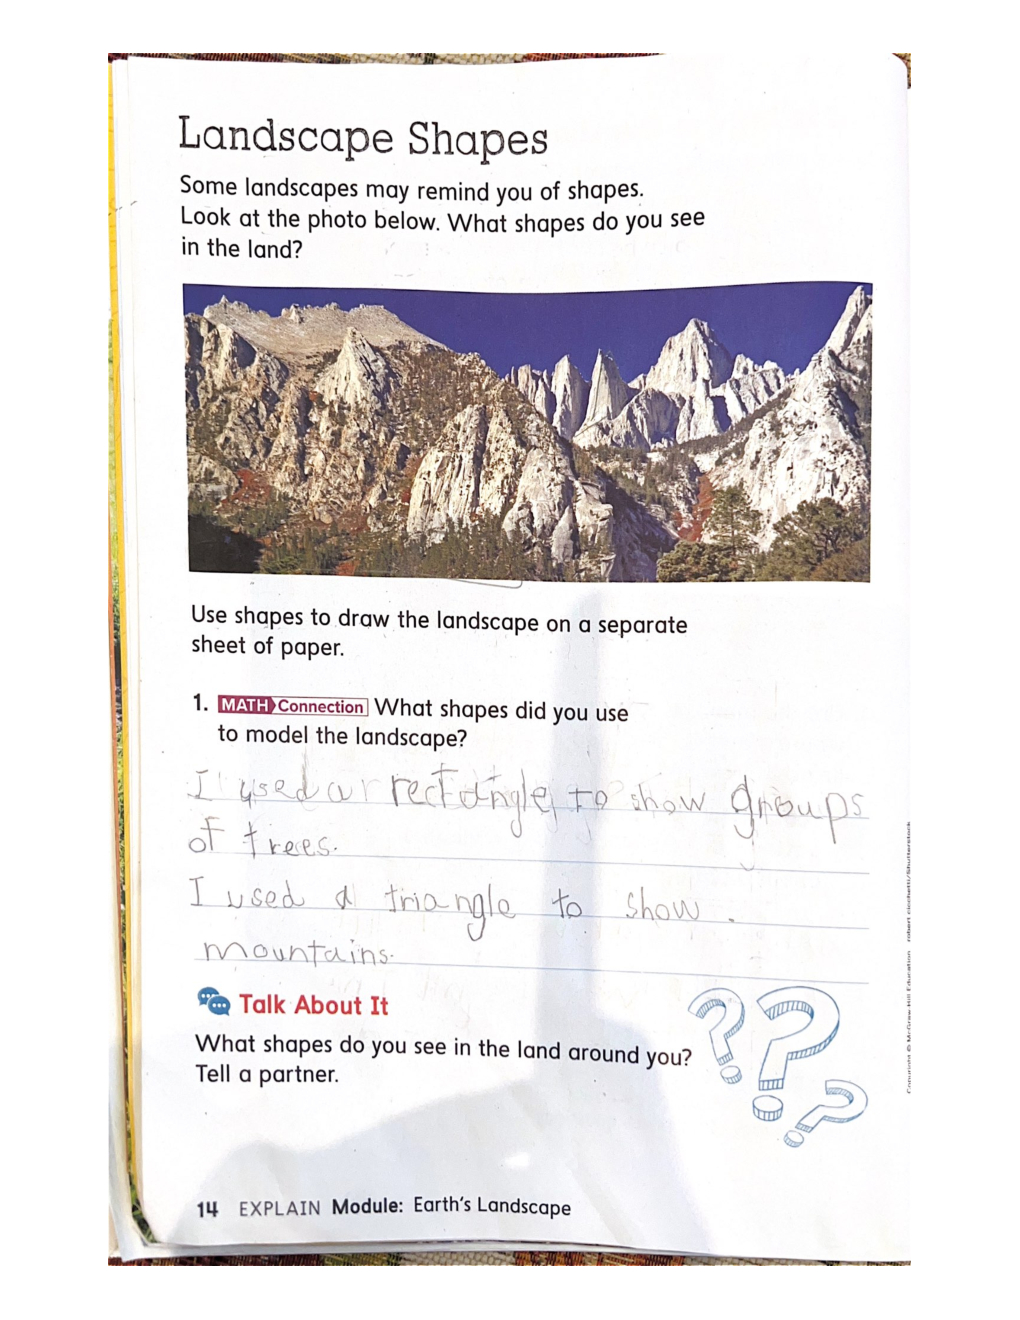 Landscape Shapes
Some landscapes may remind you of shapes.
Look at the photo below. What shapes do you see
in the land?
Use shapes to draw the landscape on a separate
sheet of paper.
1. MATH Connection What shapes did you use
to model the landscape?
I used a rectangle to show groups
of trees.
I used a triangle to show .
mountains.
Talk About It
What shapes do you see in the land around you?
Tell a partner.
???
14 EXPLAIN Module: Earth's Landscape
Copyright © McGraw-Hill Education robert cicchetti/Shutterstock